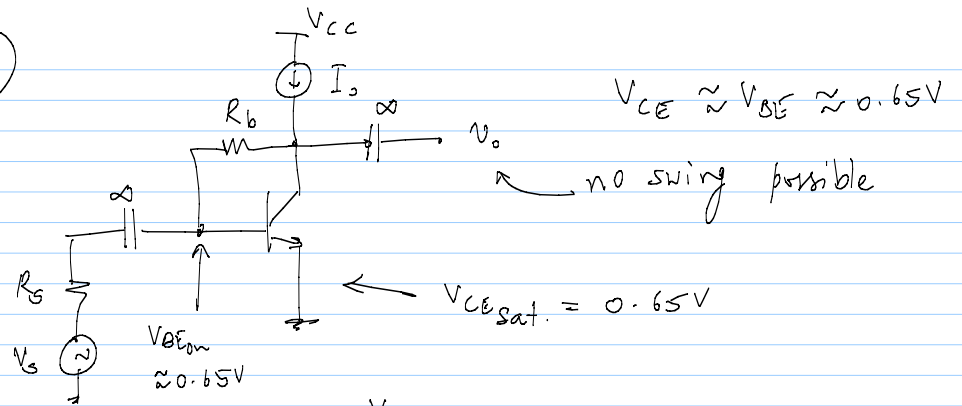 V_CC
I_o
R_b
∞
v_o
V_CE ≈ V_BE ≈ 0.65V
no swing possible
∞
R_s
V_s
V_BE_on
≈ 0.65V
V_CE_sat. = 0.65V